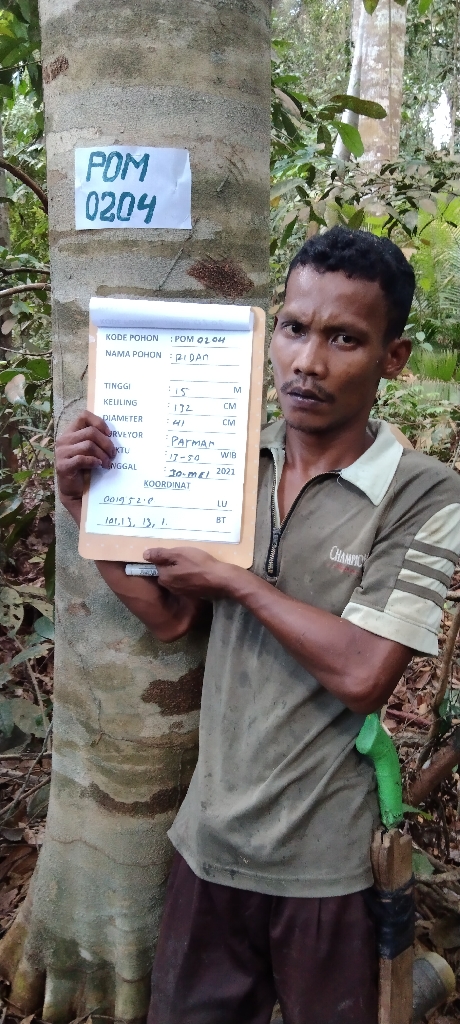 POM
0204
KODE POHON : POM 0204
NAMA POHON : RIDAN
TINGGI : 15 M
KELILING : 132 CM
DIAMETER : 41 CM
SURVEYOR : PATMAN
WAKTU : 13-50 WIB
TANGGAL : 30-MEI 2021
KOORDINAT
LU
101,13, 13, 1. BT
CHAMPION